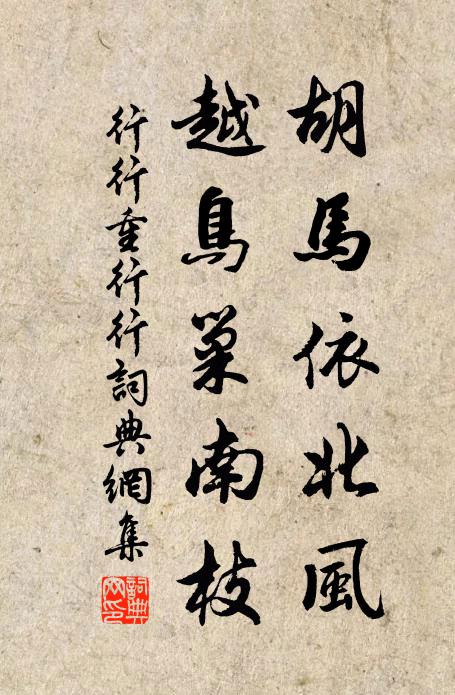 胡馬依北風
越鳥巢南枝
行行重行行詞典網集
詞典網印